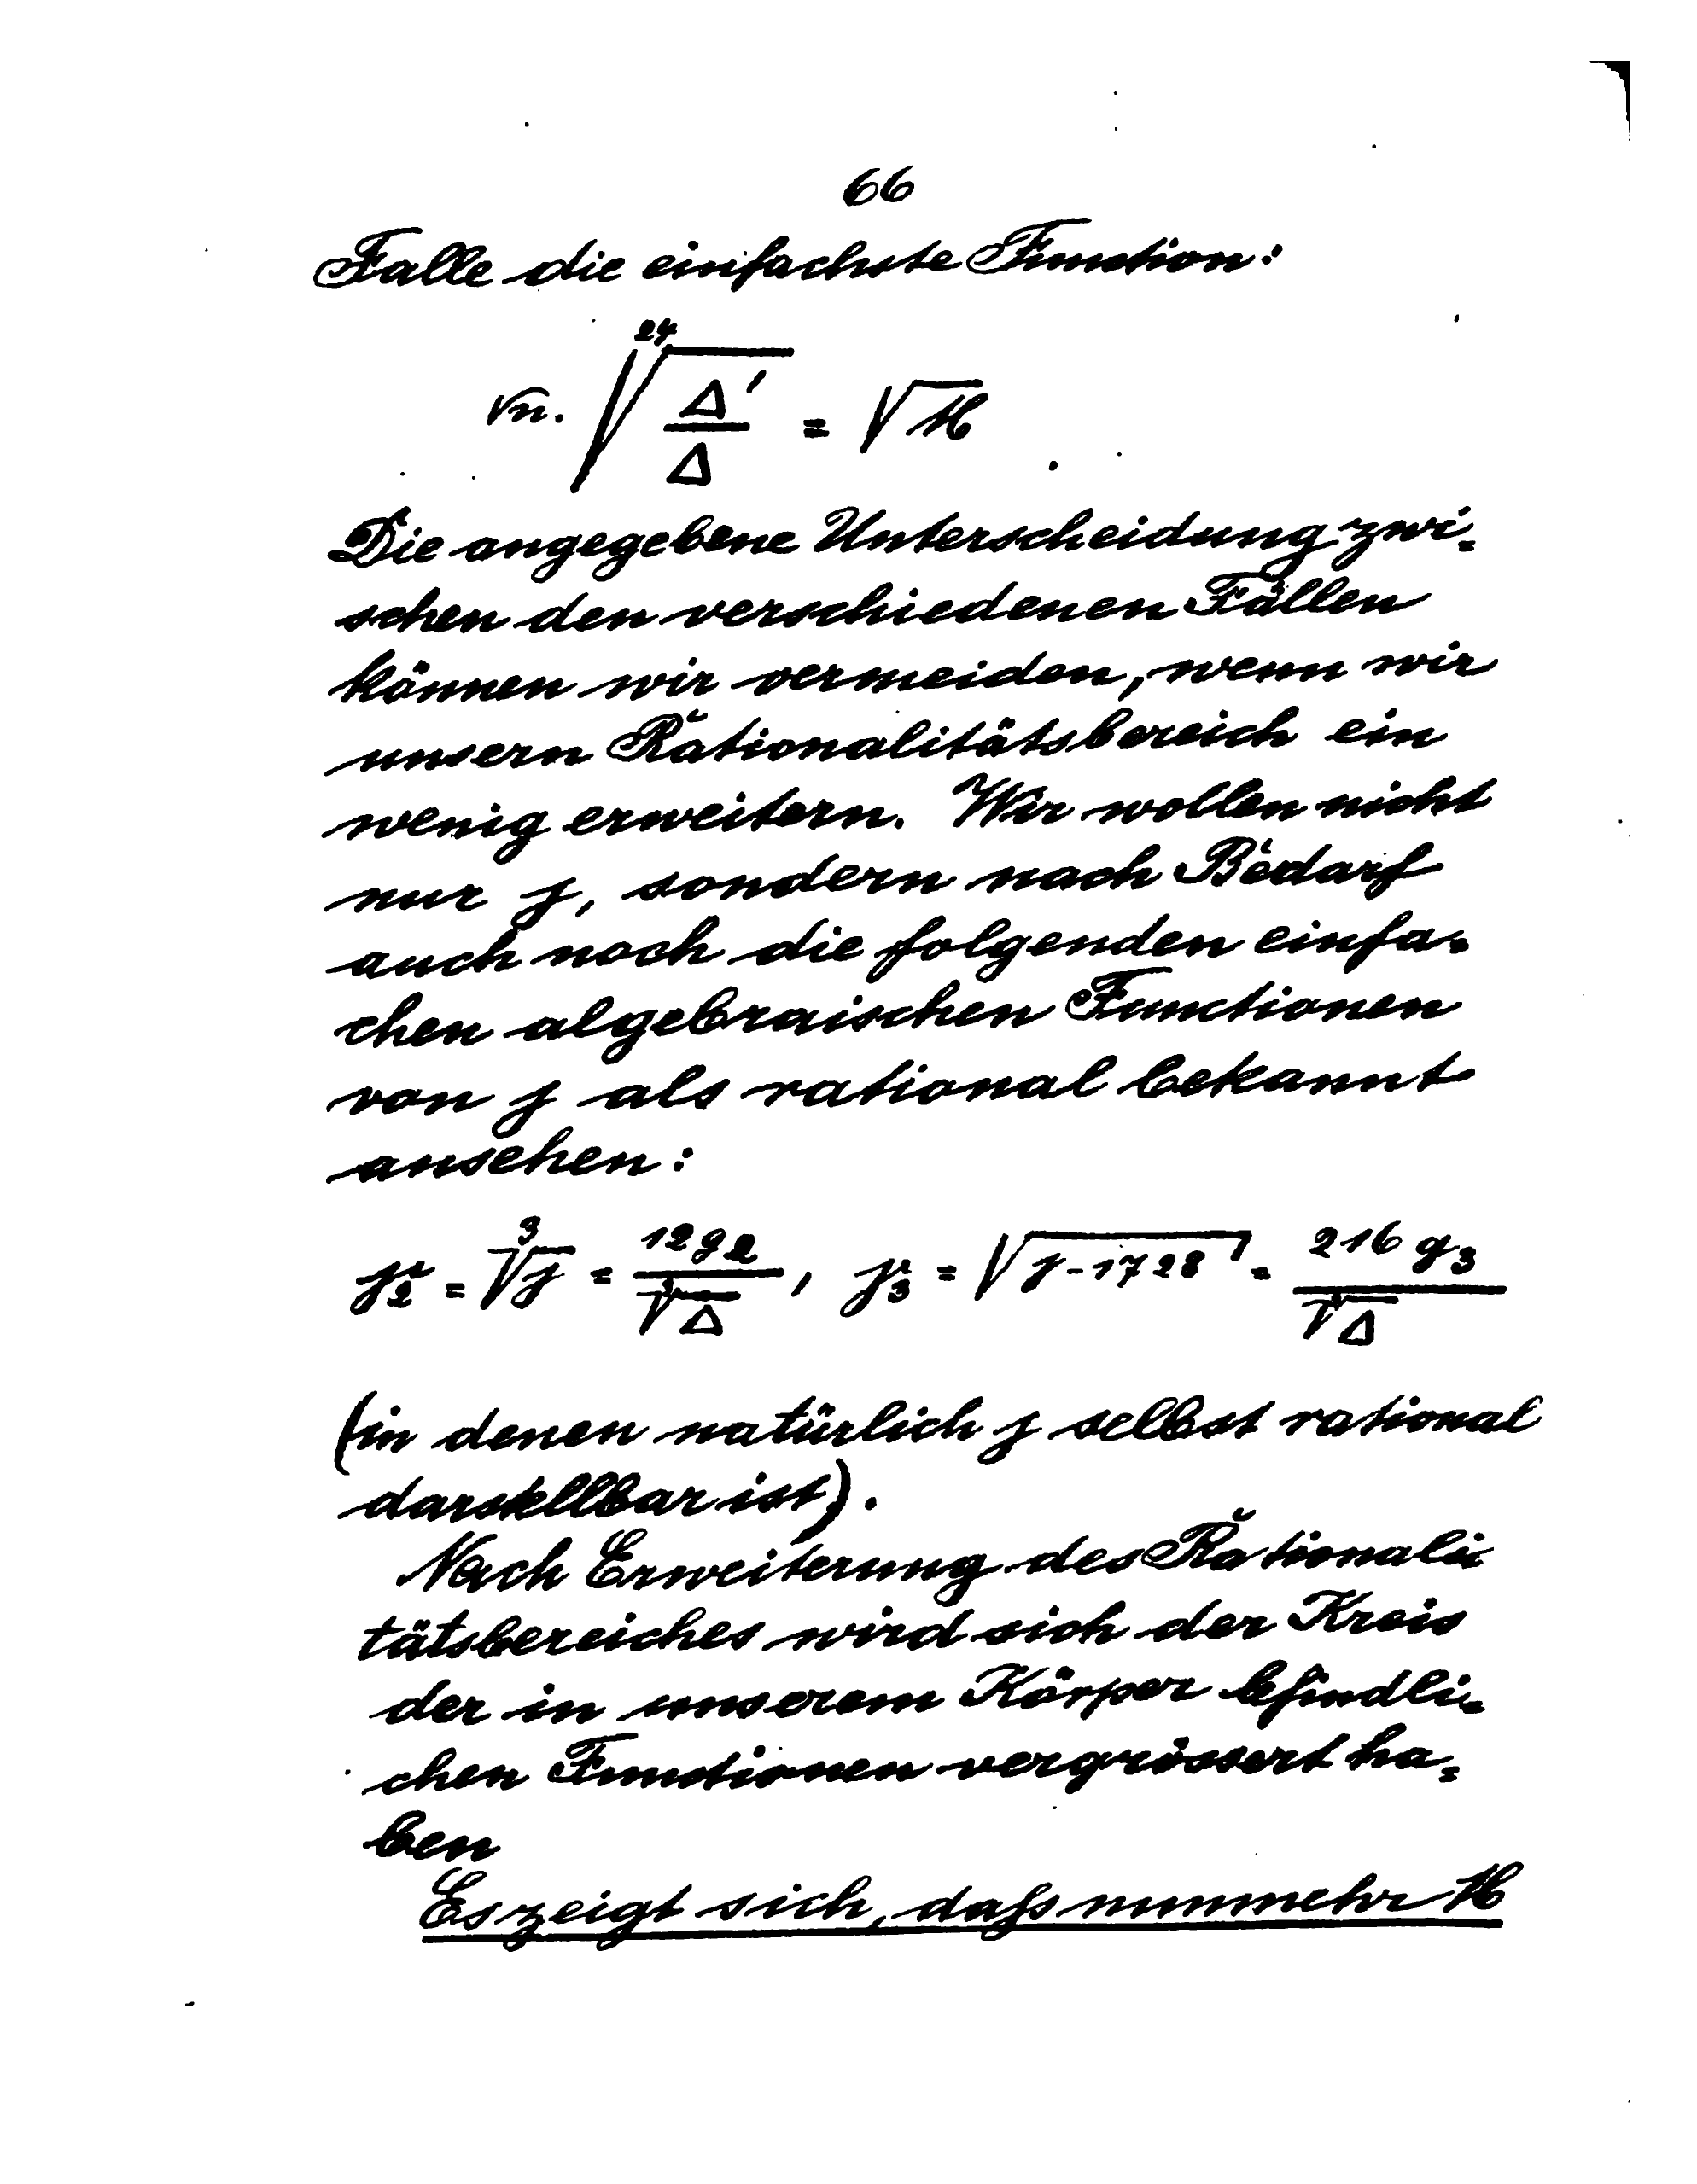 66
Falle die einfachste Function:
√n. ²⁴√(Δ'/Δ) = √M
Die angegebene Unterscheidung zwi-
schen den verschiedenen Fällen
können wir vermeiden, wenn wir
unsern Rationalitätsbereich ein
wenig erweitern. Wir wollen nicht
nur j, sondern nach Bedarf
auch noch die folgenden einfa-
chen algebraischen Functionen
von j als rational bekannt
ansehen:
γ₂ = ³√j = 12g₂/³√Δ, γ₃ = √(j-1728) = 216g₃/√Δ
(in denen natürlich j selbst rational
darstellbar ist).
Nach Erweiterung des Rationali-
tätsbereiches wird sich der Kreis
der in unserem Körper befindli-
chen Functionen vergrössert ha-
ben
Es zeigt sich, daß nunmehr M